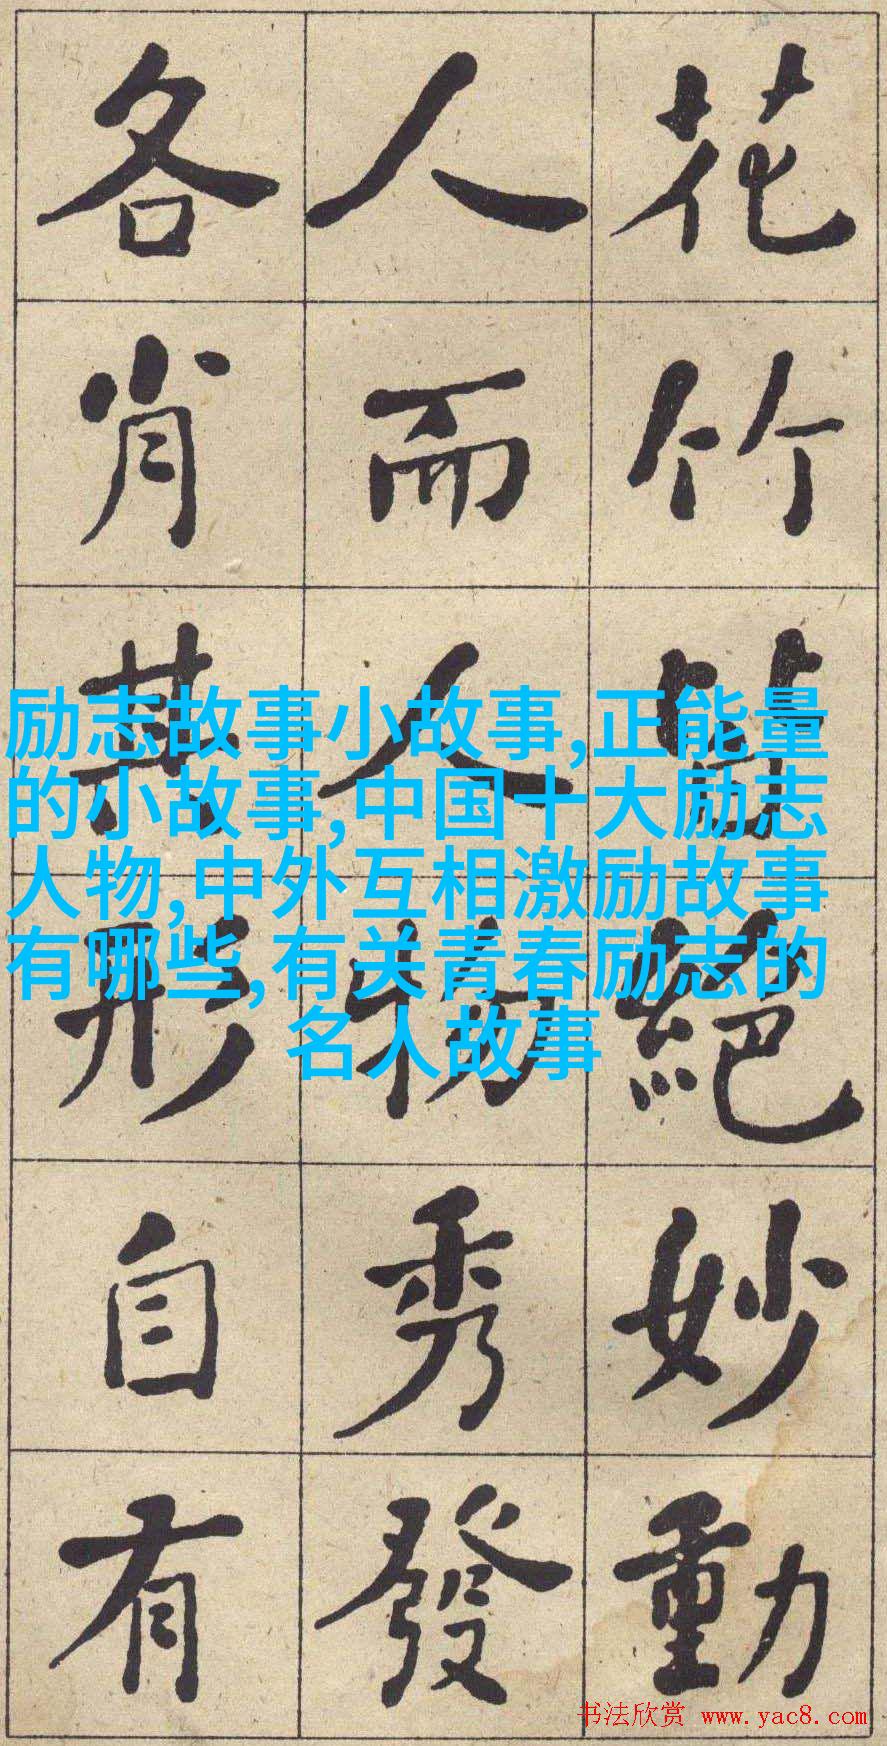 花竹絕妙動
人而人物秀發
各肖其形自有
励志故事小故事,正能量
的小故事,中国十大励志
人物,中外互相激励故事
有哪些,有关青春励志的
名人故事
书法欣赏 www.yac8.com